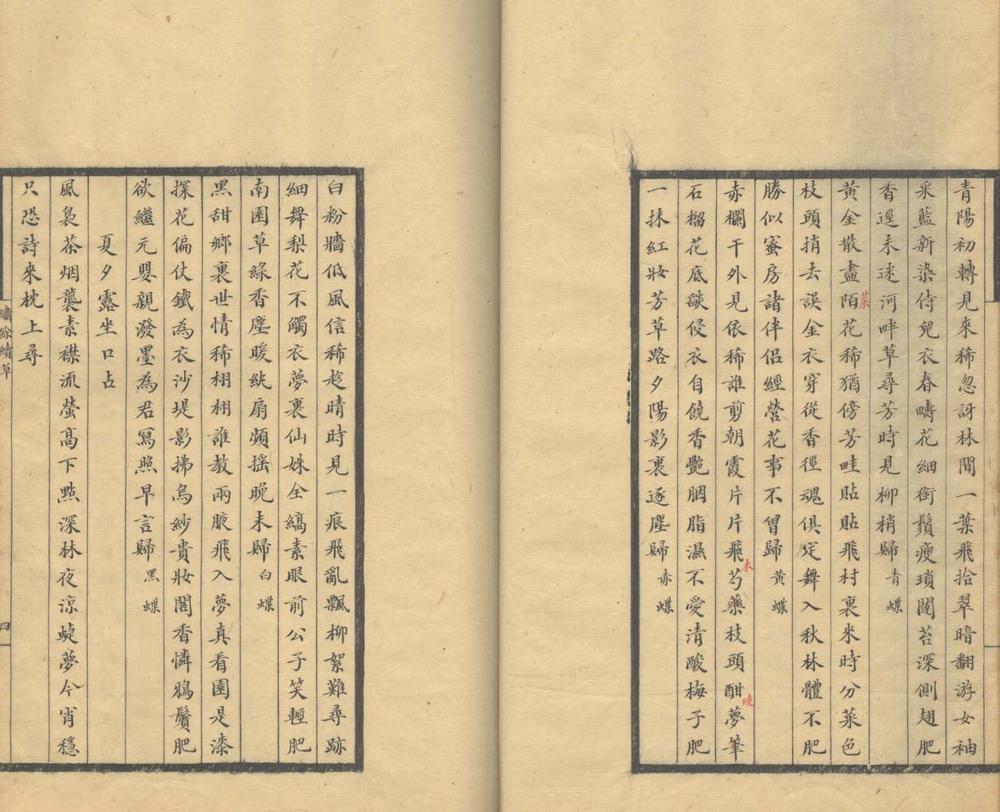 青陽初轉見來稀忽訝林間一葉飛拾翠暗翻游女袖
采藍新染侍兒衣春疇花細銜鬚瘦瑣闥苔深側翅肥
香逕未迷河畔草尋芳時見柳梢歸青蝶
黃金散盡陌花稀猶傍芳畦貼貼飛村裏來時分菜色
菜
枝頭捎去誤金衣穿從香徑魂俱定舞入秋林體不肥
勝似蜜房諸伴侶經營花事不曾歸黃蝶
赤欄干外見依稀誰剪朝霞片片飛芍藥枝頭酣夢筆
未
曉
石榴花底皺侵衣自饒香艷胭脂濕不愛清酸梅子肥
一抹紅妝芳草路夕陽影裏逐塵歸赤蝶
白粉牆低風信稀趁晴時見一痕飛亂飄柳絮難尋跡
細舞梨花不觸衣夢裏仙姝全縞素眼前公子笑輕肥
南園草綠香塵暖紈扇頻搖晚未歸白蝶
黑甜鄉裏世情稀栩栩誰教兩腋飛入夢真看園是漆
探花偏仗鐵為衣沙堤影拂烏紗貴妝閣香憐鴉鬢肥
欲繼元嬰親潑墨為君寫照早言歸黑蝶
夏夕露坐口占
風裊茶烟襲素襟流螢高下點深林夜涼蜨夢今宵穩
只恐詩來枕上尋
繡餘續草
四